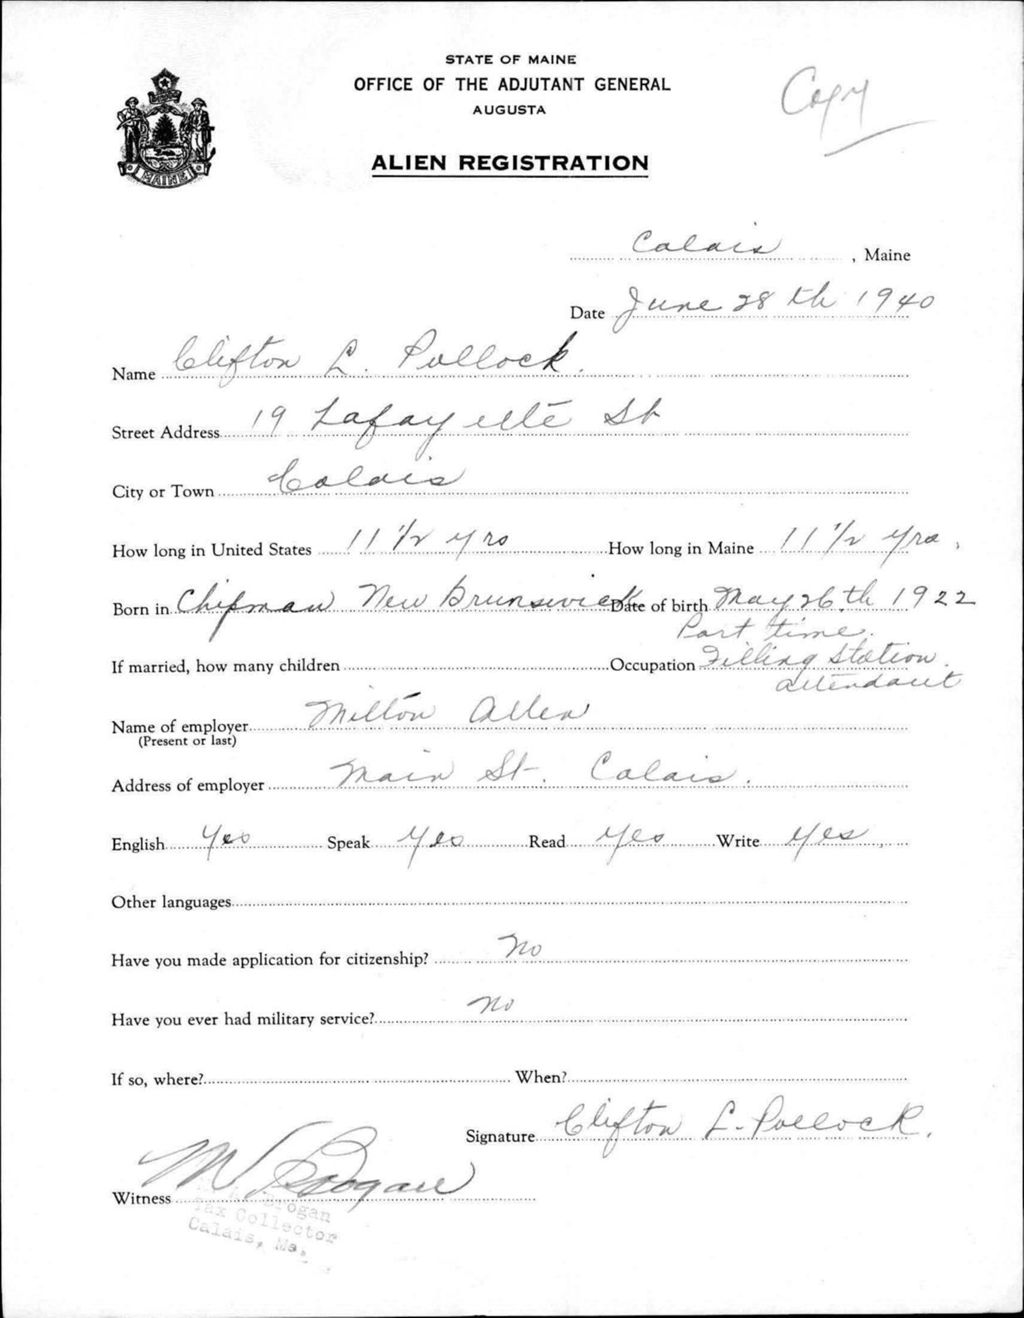 STATE OF MAINE
OFFICE OF THE ADJUTANT GENERAL
AUGUSTA
Copy
ALIEN REGISTRATION
MAINE
Calais, Maine
Date June 28th 1940
Name Clifton L. Pollock.
Street Address 19 Lafayette St
City or Town Calais
How long in United States 11 1/2 yrs How long in Maine 11 1/2 yrs.
Born in Chipman New Brunswick Date of birth May 26th 1922
Part time.
If married, how many children Occupation Filling Station
attendant
Name of employer Milton Allen
(Present or last)
Address of employer Main St. Calais.
English Yes Speak Yes Read Yes Write Yes
Other languages
Have you made application for citizenship? No
Have you ever had military service? No
If so, where? When?
Signature Clifton L. Pollock.
Witness M Brogan
Brogan
Tax Collector
Calais, Me.